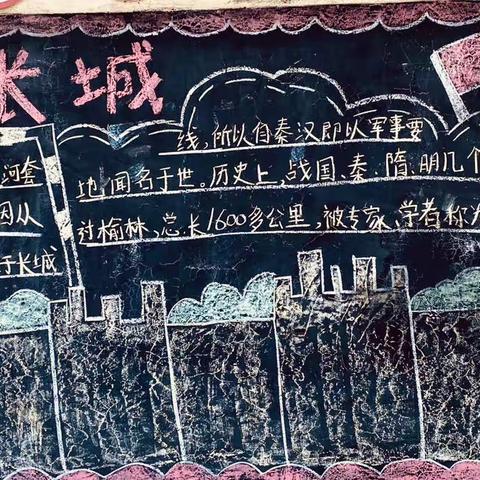 长城
线,所以自秦汉即以军事要
地,闻名于世。历史上,战国、秦、隋、明几个
过榆林,总长1600多公里,被专家、学者称为
河套
因从
于长城